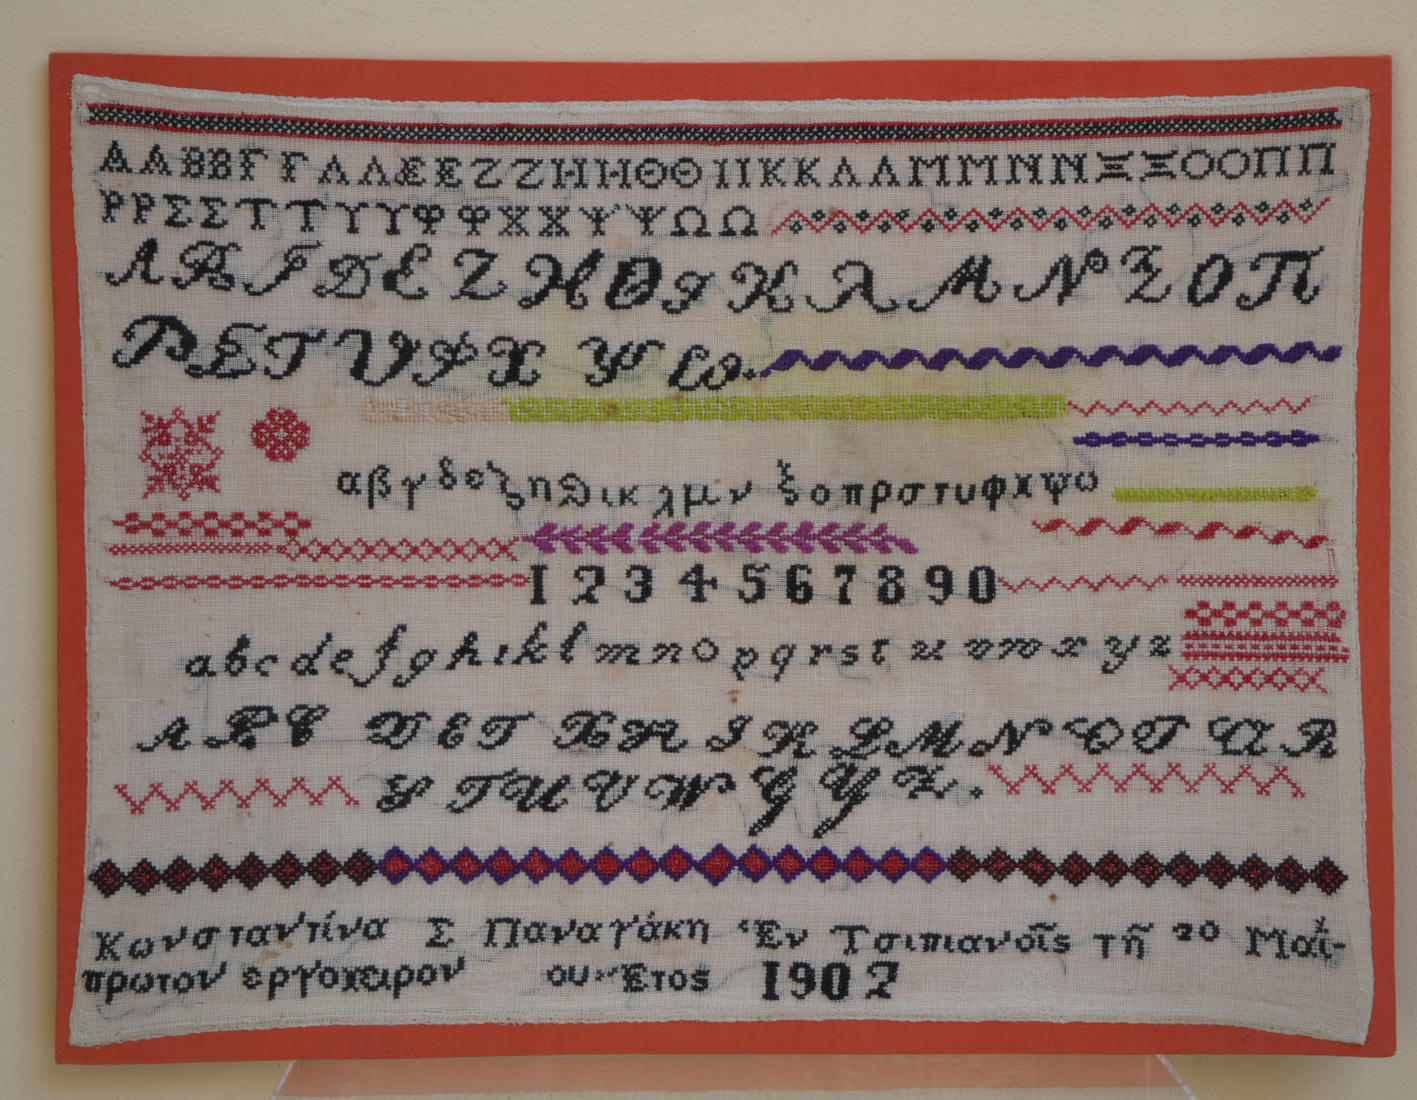 Α Α Β Β Γ Γ Δ Δ Ε Ε Ζ Ζ Η Η Θ Θ Ι Ι Κ Κ Λ Λ Μ Μ Ν Ν Ξ Ξ Ο Ο Π Π
Ρ Ρ Σ Σ Τ Τ Υ Υ Φ Φ Χ Χ Ψ Ψ Ω Ω
Α Β Γ D Ε Ζ Η Θ Ι Κ λ Μ Ν Ξ Ο Π
Ρ Σ Τ Υ Φ Χ Ψ Ω.
α β γ δ ε ζ η θ ι κ λ μ ν ξ ο π ρ σ τ υ φ χ ψ ω
1 2 3 4 5 6 7 8 9 0
a b c d e f g h i k l m n o p q r s t u v w x y z
A B C D E F G H I K L M N O P Q R
S T U V W X Y Z.
Κωνσταντίνα Σ Παναγάκη Ἐν Τσιπιανοῖς τῇ 20 Μαΐ-
πρωτον εργοχειρον ου Ἔτος 1902